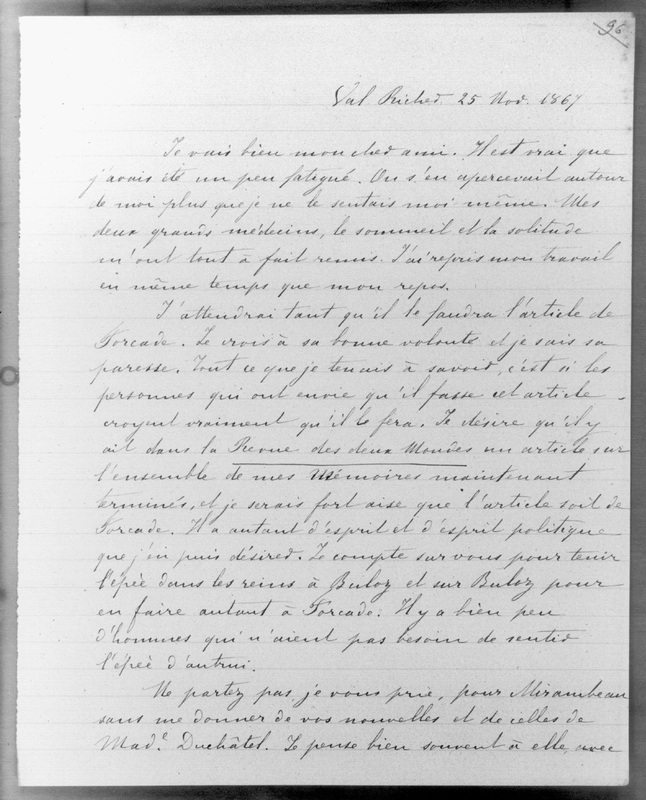 96
Val Richer 25 Nov. 1867
Je vais bien mon cher ami. Il est vrai que
j'avais été un peu fatigué. On s'en apercevait autour
de moi plus que je ne le sentais moi même. Mes
deux grands médecins, le sommeil et la solitude
m'ont tout à fait remis. J'ai repris mon travail
en même temps que mon repos.
J'attendrai tant qu'il le faudra l'article de
Forcade. Je crois à sa bonne volonté et je sais sa
paresse. Tout ce que je tenais à savoir, c'est si les
personnes qui ont envie qu'il fasse cet article
croyent vraiment qu'il le fera. Je désire qu'il y
ait dans la Revue des deux Mondes un article sur
l'ensemble de mes Mémoires maintenant
terminés, et je serais fort aise que l'article soit de
Forcade. Il a autant d'esprit et d'esprit politique
que j'en puis désirer. Je compte sur vous pour tenir
l'épée dans les reins à Buloz et sur Buloz pour
en faire autant à Forcade. Il y a bien peu
d'hommes qui n'aient pas besoin de sentir
l'épée d'autrui.
Ne partez pas, je vous prie, pour Mirambeau
sans me donner de vos nouvelles et de celles de
Mad.e Duchâtel. Je pense bien souvent à elle, avec